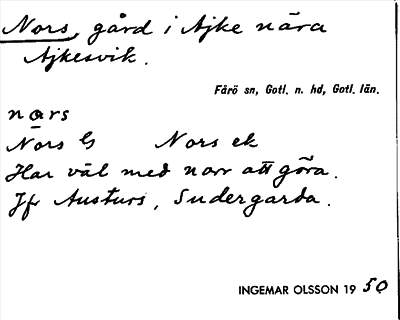 Nors, gård i Ajke nära
Ajkesvik.
Fårö sn, Gotl. n. hd, Gotl. län.
nors
Nors G Nors ek
Har väl med norr att göra.
Jfr Austurs, Sudergarda.
INGEMAR OLSSON 19 50